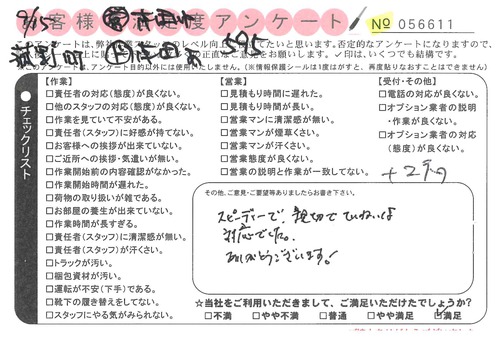 9/15
お客様満足度アンケート
No 056611
595
チェックリスト
【作業】
□責任者の対応(態度)が良くない。
□他のスタッフの対応(態度)が良くない。
□作業を見ていて不安がある。
□責任者(スタッフ)に好感が持てない。
□お客様への挨拶が出来ていない。
□ご近所への挨拶・気遣いが無い。
□作業開始前の内容確認がなかった。
□作業開始時間が遅れた。
□荷物の取り扱いが雑である。
□お部屋の養生が出来ていない。
□作業時間が長すぎる。
□責任者(スタッフ)に清潔感が無い。
□責任者(スタッフ)が汗くさい。
□トラックが汚い。
□梱包資材が汚い。
□運転が不安(下手)である。
□靴下の履き替えをしてない。
□スタッフにやる気がみられない。
【営業】
□見積もり時間に遅れた。
□見積もり時間が長い。
□営業マンに清潔感が無い。
□営業マンが煙草くさい。
□営業マンが汗くさい。
□営業態度が良くない。
□営業の説明と作業が一致してない。
【受付・その他】
□電話の対応が良くない。
□オプション業者の説明
・作業が良くない。
□オプション業者の対応
(態度)が良くない。
その他、ご意見・ご要望等ありましたらお書き下さい。
スピーディーで、親切でていねいな
対応でした。
ありがとうございます!
☆当社をご利用いただきまして、ご満足いただけたでしょうか?
□不満 □やや不満 □普通 □やや満足 ☑満足